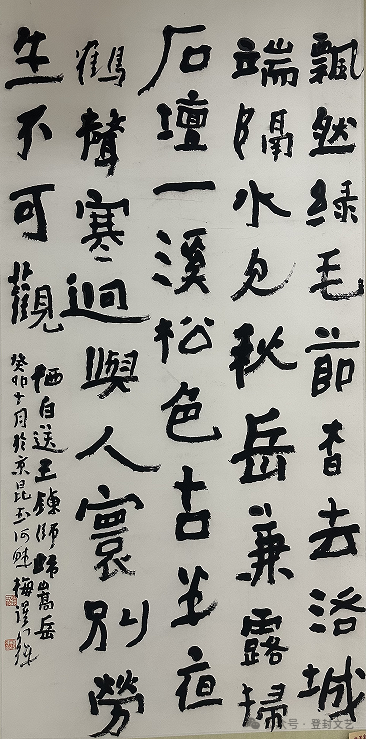 飄然緑毛節杳去洛城
端隔水見秋岳兼露掃
石壇一溪松色古半夜
鶴聲寒迥與人寰別勞
生不可觀
栖白送王鍊師歸嵩岳
癸卯十月於京昆玉河畔
公众号·登封文艺